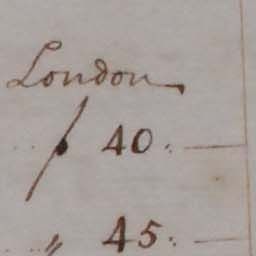 London
.. ƒ 40:—
.. „ 45:—